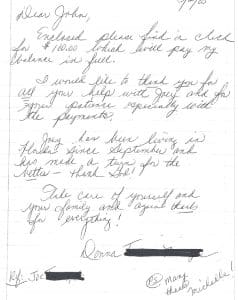 Dear John,
Enclosed please find a check
for $100.00 which will pay my
balance in full.
I would like to thank you for
all your help with Joey and for
your patience especially with
the payments.
Joey has been living in
Florida since September and
has made a turn for the
better - thank God!
Take care of yourself and
your family and again thanks
for everything!
Donna
Re: Joe
PS many
thanks Michelle!